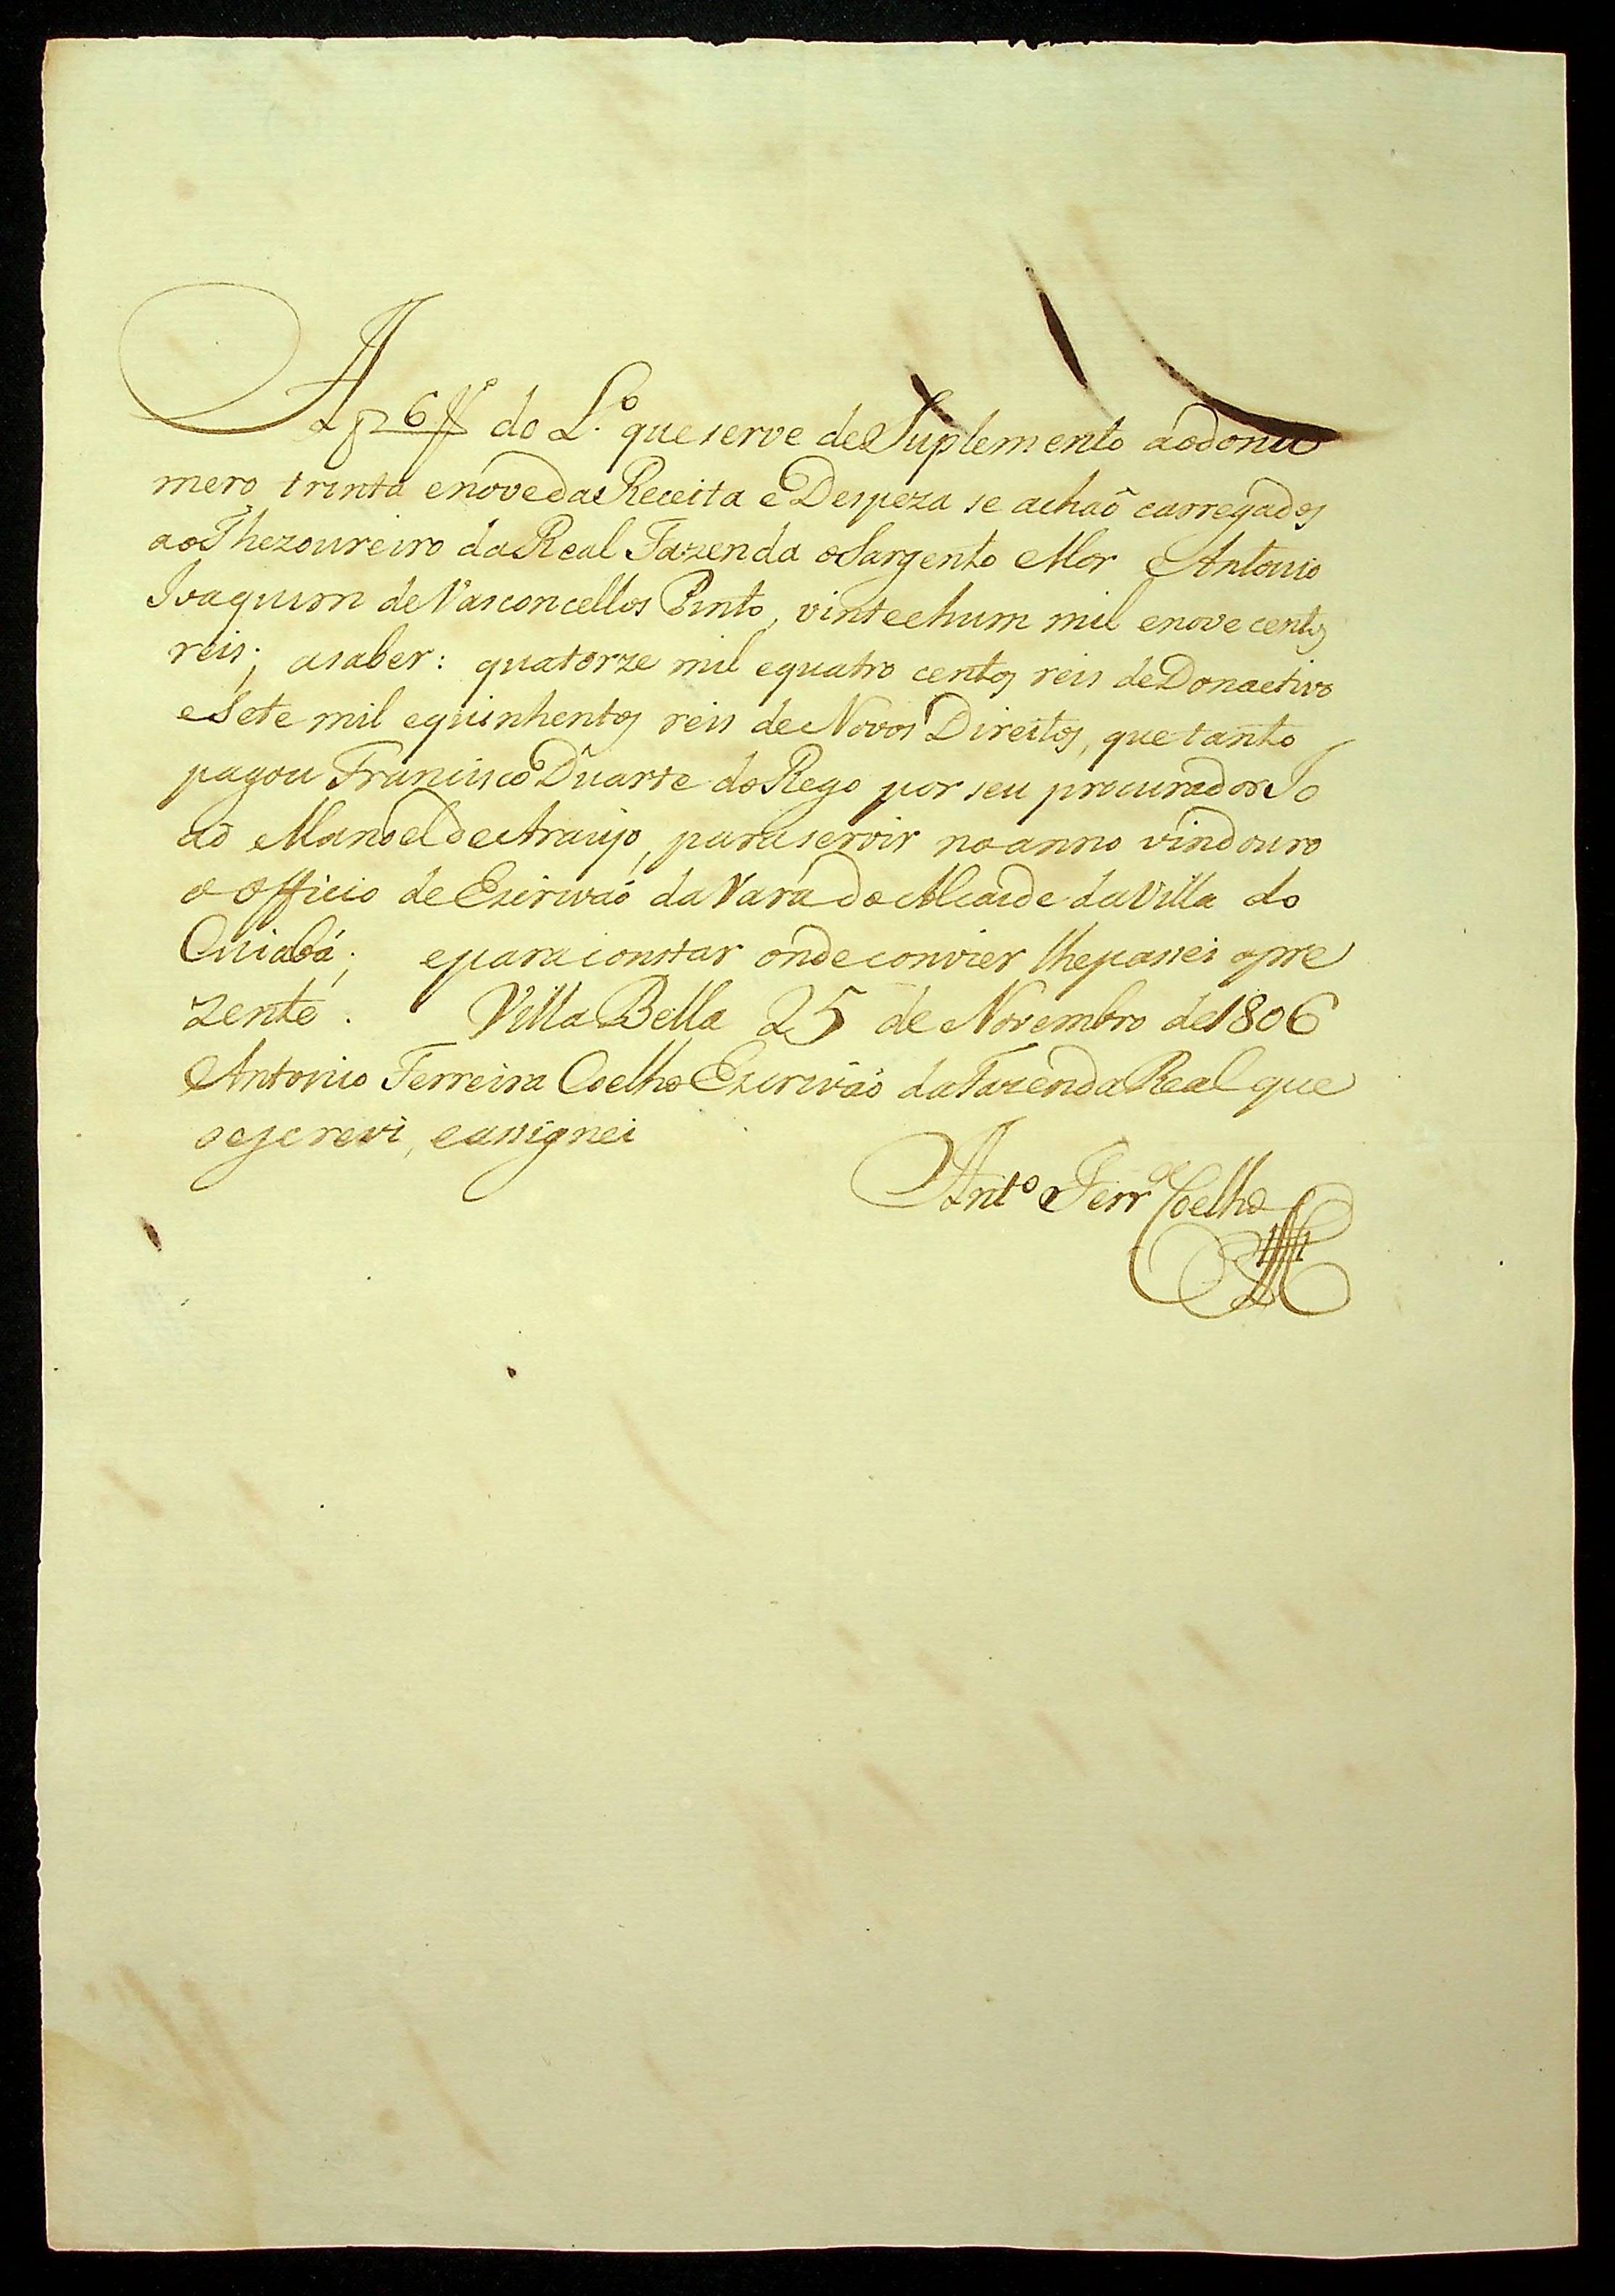 A f 6 do L.º que serve de Suplemento áo do nu
mero trinta e nove da Receita e Despeza se achaõ carregados
ao Thezoureiro da Real Fazenda o Sargento Mor Antonio
Joaquim de Vasconcellos Pinto, vinte e hum mil e nove centos
reis; a saber: quatorze mil e quatro centos reis de Donactivo
e Sete mil e quinhentos reis de Novos Direitos, que tanto
pagou Francisco Duarte do Rego por seu procurador Jo
aõ Manoel de Araujo, para servir no anno vindouro
o Officio de Escrivaõ da Vara do Alcaide da Villa do
Cuiabá; e para constar onde convier lhe passei o pre
zente. Villa Bella 25 de Novembro de 1806
Antonio Ferreira Coelho Escrivaõ da Fazenda Real que
o escrevi, e assignei
Ant.º Ferr.ª Coelho